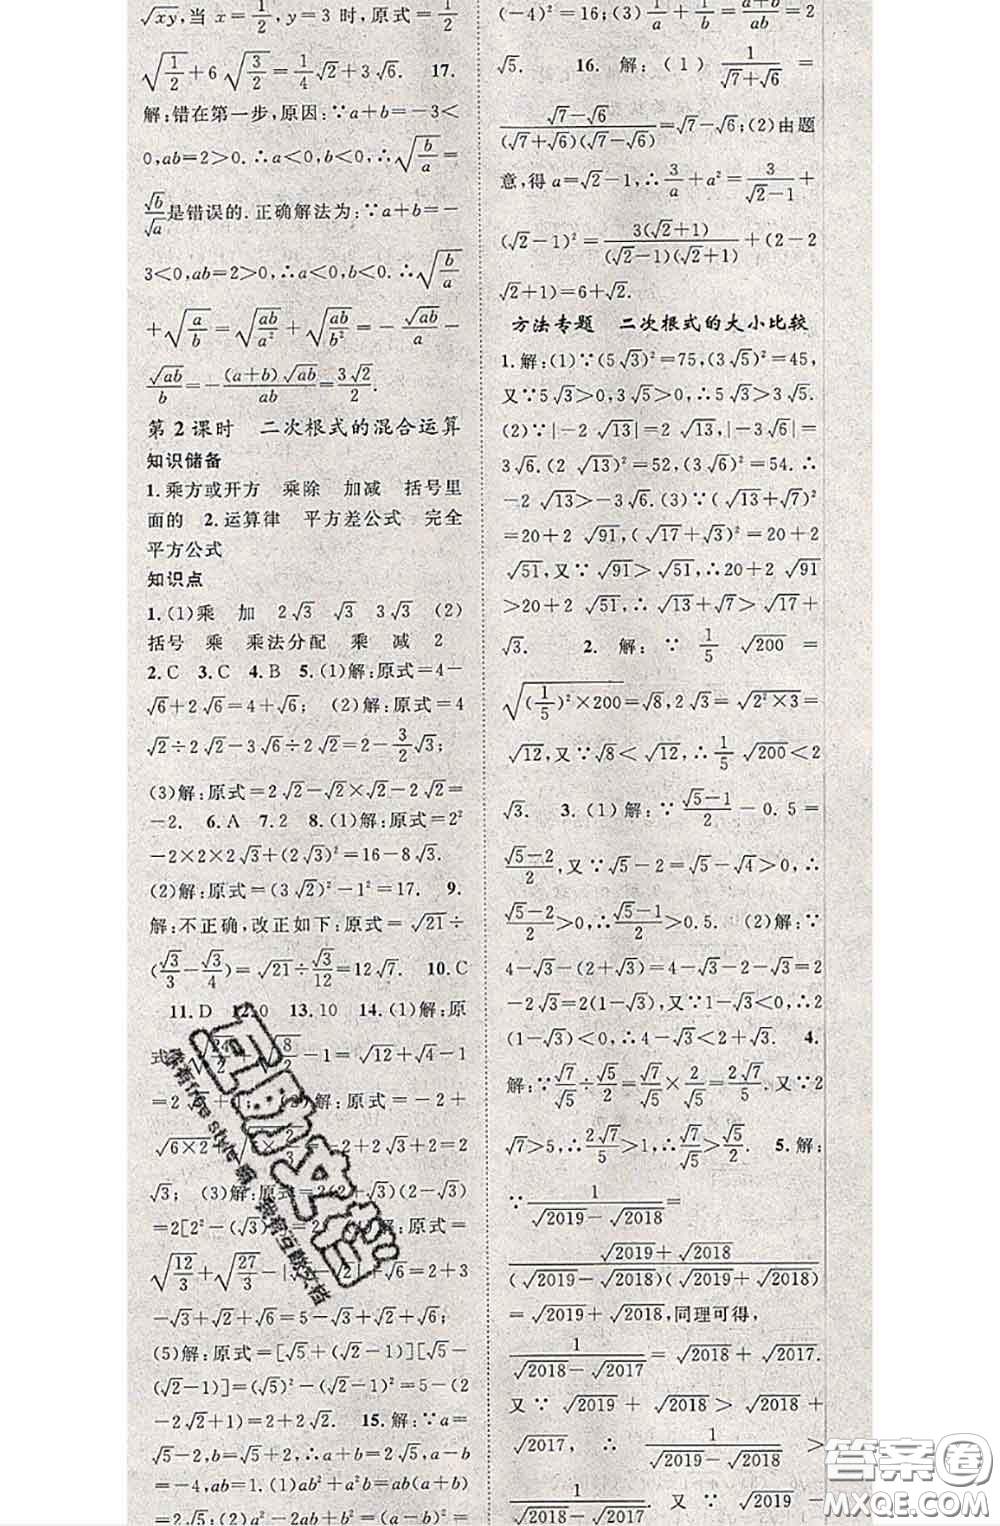 √xy,当 x=1/2,y=3 时,原式=1/2
√(1/2)+6√(3/2)=1/4√2+3√6. 17.
解:错在第一步,原因:∵a+b=-3<
0,ab=2>0.∴a<0,b<0.∴√(b/a)=
√b/√a是错误的.正确解法为:∵a+b=-
3<0,ab=2>0,∴a<0,b<0.∴√(b/a)
+√(a/b)=√(ab/a²)+√(ab/b²)=-√ab/a-
√ab/b=-(a+b)√ab/ab=3√2/2.
第2课时 二次根式的混合运算
知识储备
1.乘方或开方 乘除 加减 括号里
面的 2.运算律 平方差公式 完全
平方公式
知识点
1.(1)乘 加 2√3 √3 3√3 (2)
括号 乘 乘法分配 乘 减 2
2.C 3.C 4.B 5.(1)解:原式=4-
√6+2√6=4+√6; (2)解:原式=4
√2÷2√2-3√6÷2√2=2-3/2√3;
(3)解:原式=2√2-2×√2-2√2=
-2. 6.A 7.2 8.(1)解:原式=2²
-2×2×2√3+(2√3)²=16-8√3.
(2)解:原式=(3√2)²-1²=17. 9.
解:不正确,改正如下:原式=√21÷
(√3/3-√3/4)=√21÷√3/12=12√7. 10.C
11.D 12.0 13.10 14.(1)解:原
-1=√12+√4-1
解:原式=-2+
√(6×2) +2√3+2=2
√3; (3)解:原式=2(2+√3)(2-√3)
=2[2²-(√3)²]=2
√(12/3)+√(27/3)-|√6=2+3
-√3+√2+√6=5-√3+√2+√6;
(5)解:原式=[√5+(√2-1)][√5-
(√2-1)]=(√5)²-(√2-1)²=5-(2
-2√2+1)=2+2√2. 15.解:∵a=
√5-2,b=√5+2,∴a+b=2√5,a-b
=-4,ab=1.(1)ab²+a²b=ab(a+b)
(-4)²=16;(3)1/a+1/b=(a+b)/ab=2
√5. 16.解:(1)1/(√7+√6)=
(√7-√6)/((√7+√6)(√7-√6))=√7-√6;(2)由题
意,得a=√2-1,∴3/a+a²=3/(√2-1)+
(√2-1)²=3(√2+1)/((√2-1)(√2+1))+(2-2
√2+1)=6+√2.
方法专题 二次根式的大小比较
1.解:(1)∵(5√3)²=75,(3√5)²=45,
又∵5√3>0,3√5>0,∴5√3>3√5.
(2)∵|-2√13|=2√13,|-3√6|=
3√6.(2√13)²=52,(3√6)²=54.∴
-2√13>-3√6.(3)∵(√13+√7)²
=20+2√91,(√17+√3)²=20+2
√51,又∵√91>√51,∴20+2√91
>20+2√51.∴√13+√7>√17+
√3. 2.解:∵1/5√200=
√((1/5)²×200)=√8,2√3=√(2²×3)=
√12,又∵√8<√12,∴1/5√200<2
√3. 3.(1)解:∵(√5-1)/2-0.5=
(√5-2)/2,又∵√5-2=√5-√4>0,∴
(√5-2)/2>0,∴(√5-1)/2>0.5. (2)解:∵
4-√3-(2+√3)=4-√3-2-√3=2
-2√3=2(1-√3),又∵1-√3<0,∴2
(1-√3)<0,∴4-√3<2+√3. 4.
解:∵√7/√5÷√5/2=√7/√5×2/√5=2√7/5.又∵2
√7>5,∴2√7/5>1,∴√7/√5>√5/2. 5.解:
∵1/(√2019-√2018)=
(√2019+√2018)/((√2019-√2018)(√2019+√2018))
=√2019+√2018,同理可得,
1/(√2018-√2017)=√2018+√2017.
又∵√2019+√2018>√2018+
√2017,∴1/(√2019-√2018)>
1/(√2018-√2017).又∵√2019-
答案圈
MXQE.COM